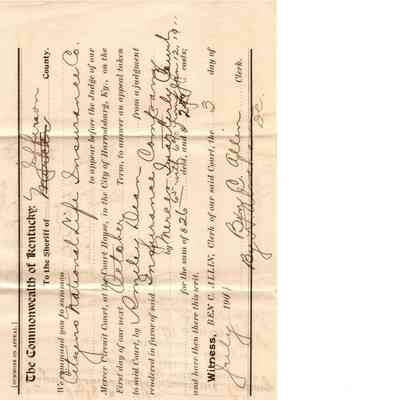 [SUMMONS ON APPEAL]
The Commonwealth of Kentucky,
To the Sheriff of Jefferson County.
We command you to summon
Citizens National Life Insurance Co.
to appear before the Judge of our
Mercer Circuit Court, at the Court House, in the City of Harrodsburg, Ky., on the
First day of our next October Term, to answer an appeal taken
to said Court, by Smiley Dean from a judgment
rendered in favor of said Insurance Company
by Mercer Quarterly Court
for the sum of $26 debt, and $ costs;
and have then there this writ.
Witness, BEN C. ALLIN, Clerk of our said Court, the 3 day of
July 191
Ben C. Allin Clerk.
By D.C.